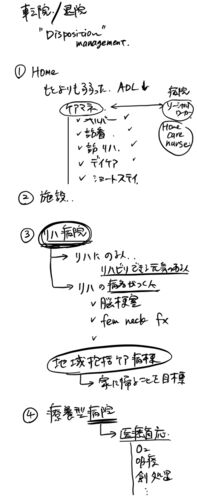 転院/退院
"Disposition"
management.
① Home
もともとより弱った.. ADL↓
ケアマネ
病院
ソーシャルワーカー
Home
care
nurse
✓ ヘルパー ✓
✓ 訪看. ✓
✓ 訪リハ. ✓
✓ デイケア ✓
✓ ショートステイ.
② 施設..
③ リハ病院
→ リハにのる人..
リハビリできる元気のある人
→ リハの病名がつく人
✓ 脳梗塞
✓ fem neck fx
✓
地域包括ケア病棟
→ 家に帰ることを目標
④ 療養型病院
→ 医療対応.
O2
吸痰
創処置
⋮